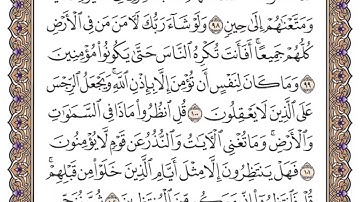 وَمَتَّعْنَاهُمْ إِلَىٰ حِينٍ ٩٨ وَلَوْ شَاءَ رَبُّكَ لَآمَنَ مَن فِي الْأَرْضِ
كُلُّهُمْ جَمِيعًا ۚ أَفَأَنتَ تُكْرِهُ النَّاسَ حَتَّىٰ يَكُونُوا مُؤْمِنِينَ
٩٩ وَمَا كَانَ لِنَفْسٍ أَن تُؤْمِنَ إِلَّا بِإِذْنِ اللَّهِ ۚ وَيَجْعَلُ الرِّجْسَ
عَلَى الَّذِينَ لَا يَعْقِلُونَ ١٠٠ قُلِ انظُرُوا مَاذَا فِي السَّمَاوَاتِ
وَالْأَرْضِ ۚ وَمَا تُغْنِي الْآيَاتُ وَالنُّذُرُ عَن قَوْمٍ لَّا يُؤْمِنُونَ
١٠١ فَهَلْ يَنتَظِرُونَ إِلَّا مِثْلَ أَيَّامِ الَّذِينَ خَلَوْا مِن قَبْلِهِمْ ۚ